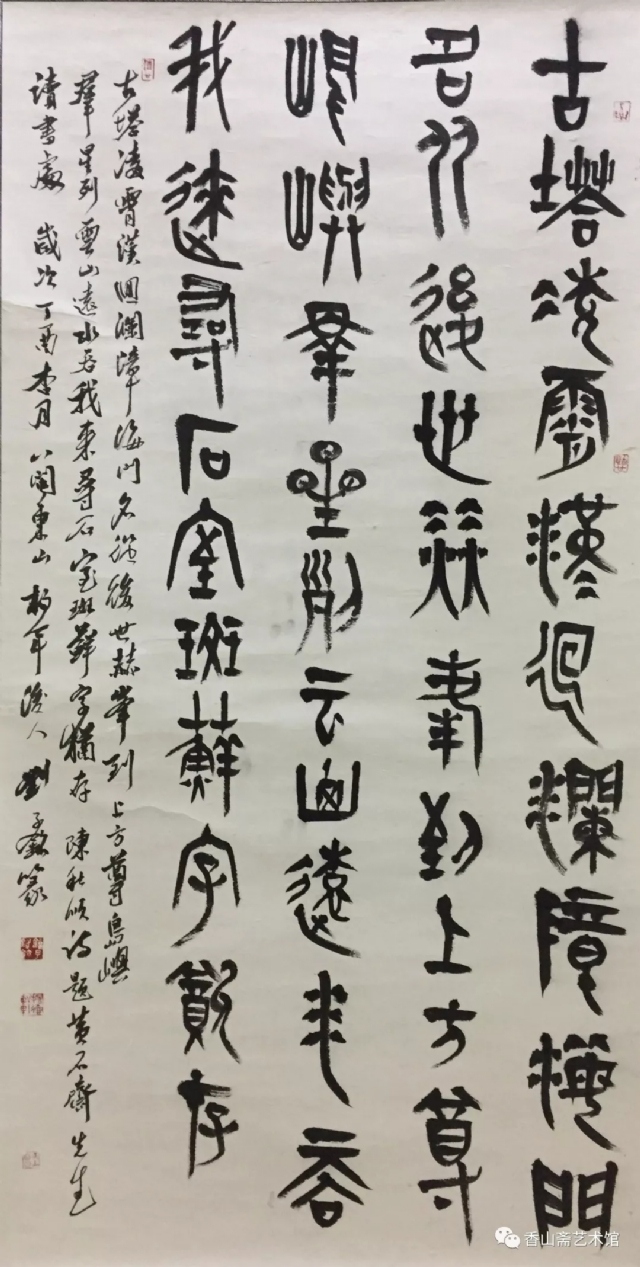 古塔凌霄漢回瀾障海門
名從後世赫峯到上方尊
島嶼羣星列云山遠水吞
我來尋石室斑蘚字猶存
古塔凌霄漢回瀾障海門名從後世赫峯到上方尊島嶼
羣星列雲山遠水吞我來尋石室斑蘚字猶存 陳秋順詩題黃石齋先生
讀書處 歲次丁酉 月八閩東山 後人劉子 篆
香山斋艺术馆